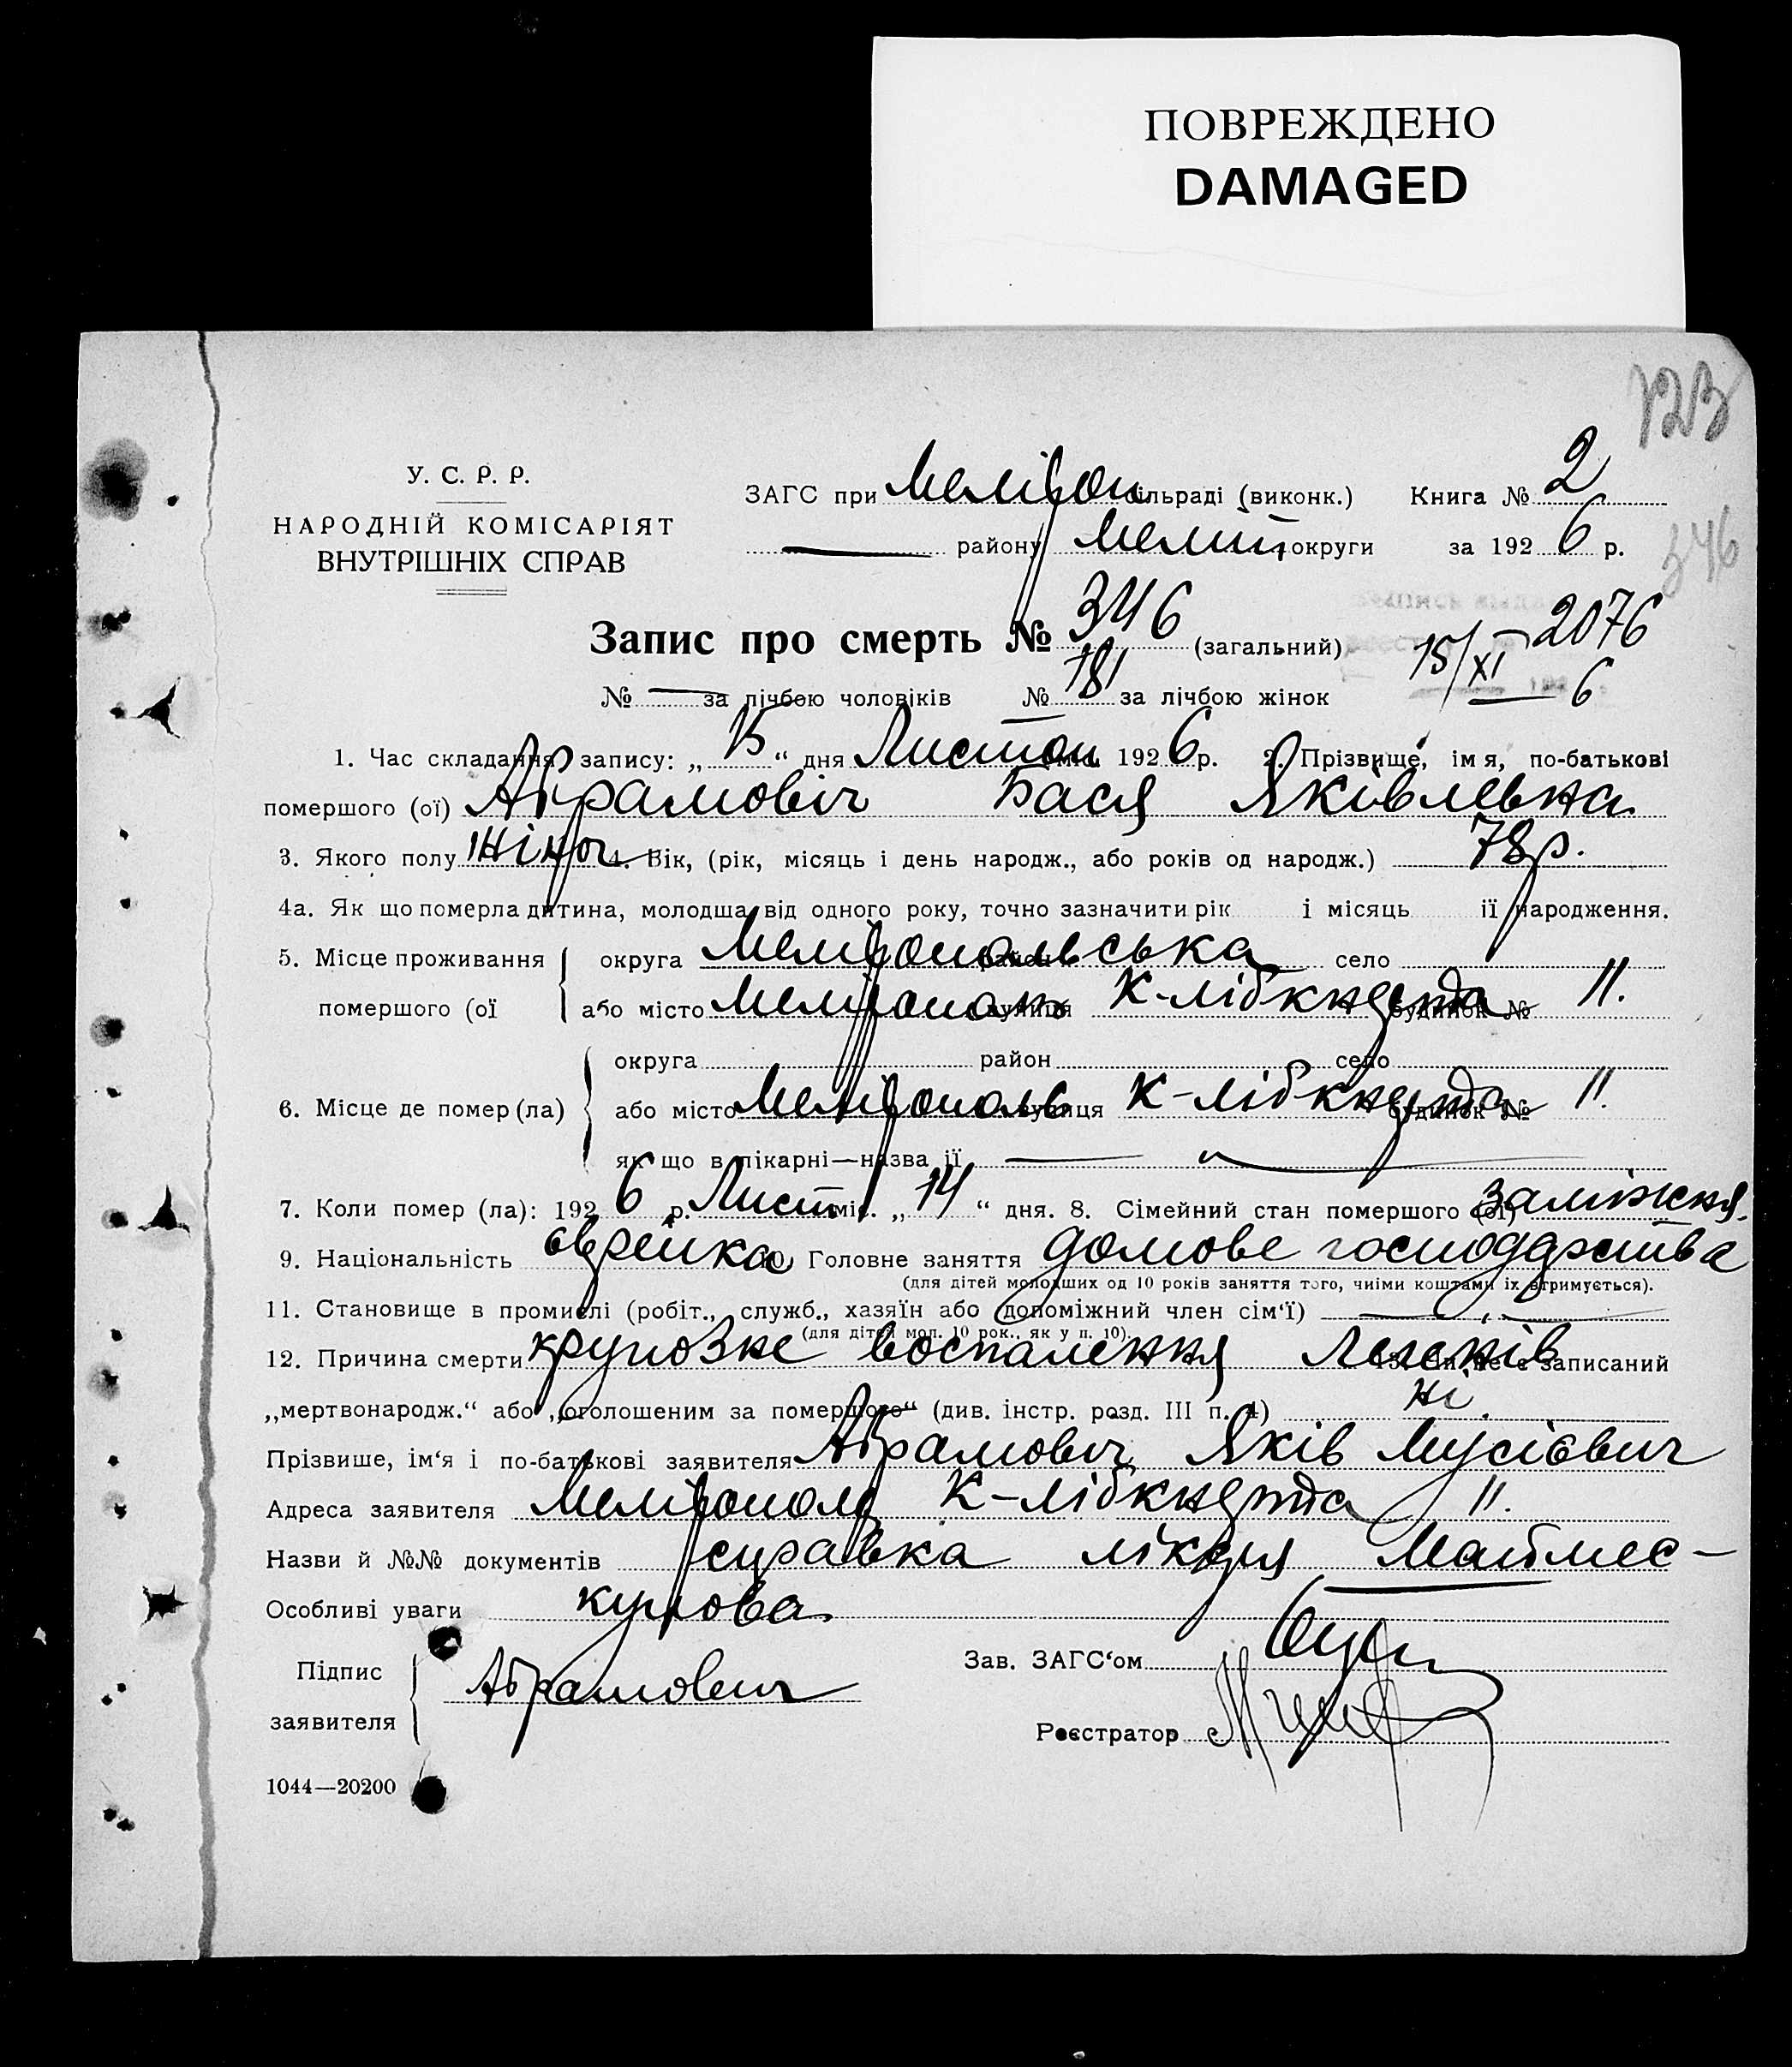 ПОВРЕЖДЕНО
DAMAGED
123
У. С. Р. Р.
НАРОДНІЙ КОМІСАРІЯТ
ВНУТРІШНІХ СПРАВ
ЗАГС при Мелітоп сільраді (виконк.) Книга № 2
району Меліт округи за 192 6 р.
346
Запис про смерть № 346 (загальний)
15/XI 2076
6
№ — за лічбою чоловіків № 181 за лічбою жінок
1. Час складання запису: „ 15 “ дня Листоп міс. 192 6 р. 2. Прізвище, імя, по-батькові
помершого (ої) Абрамовіч Бася Яківлевна
3. Якого полу жіноч 4. Вік, (рік, місяць і день народж., або років од народж.) 78 р.
4а. Як що померла дитина, молодша від одного року, точно зазначити рік і місяць її народження.
5. Місце проживання округа Мелітопольська район село
помершого (ої або місто Мелітополь вулиця К-лібкнехта будинок № 11.
округа район село
6. Місце де помер (ла) або місто Мелітополь вулиця К-лібкнехта будинок № 11.
як що в лікарні—назва її — „ —
7. Коли помер (ла): 192 6 р. Лист міс. „ 14 “ дня. 8. Сімейний стан помершого (ої) заміжня.
9. Національність єврейка 10. Головне заняття домове господарства
(для дітей молодших од 10 років заняття того, чиїми коштами їх втримується).
11. Становище в промислі (робіт., служб., хазяїн або допоміжний член сім‘ї) — „ —
(для дітей мол. 10 рок., як у п. 10).
12. Причина смерти крупозне воспалення Легенів 13. Чи не є записаний
„мертвонародж.“ або „оголошеним за померлого“ (див. інстр. розд. III п. 4) ні.
Прізвише, ім‘я і по-батькові заявителя Абрамовіч Яків Мусієвич
Адреса заявителя Мелітополь К-лібкнехта 11.
Назви й №№ документів справка лікаря Маймес-
Особливі уваги кулова.
Підпис
заявителя
Абрамович
Зав. ЗАГС‘ом
Реєстратор
1044—20200